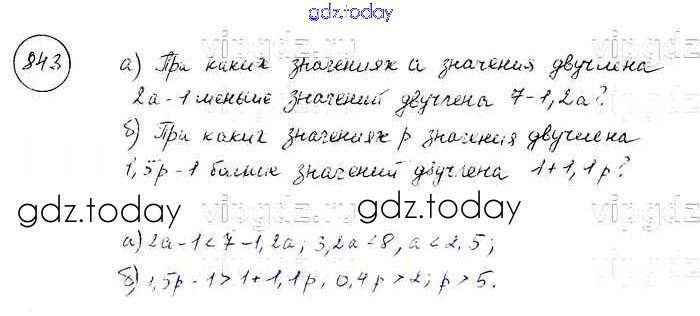 gdz.today
vipgdz.ru
843
а) При каких значениях а значения двучлена
2а-1 меньше значений двучлена 7-1,2а?
б) При каких значениях р значения двучлена
1,5р-1 больше значений двучлена 1+1,1р?
gdz.today gdz.today
а) 2а-1<7-1,2а; 3,2а<8, а<2,5;
б) 1,5р-1>1+1,1р, 0,4р>2; р>5.